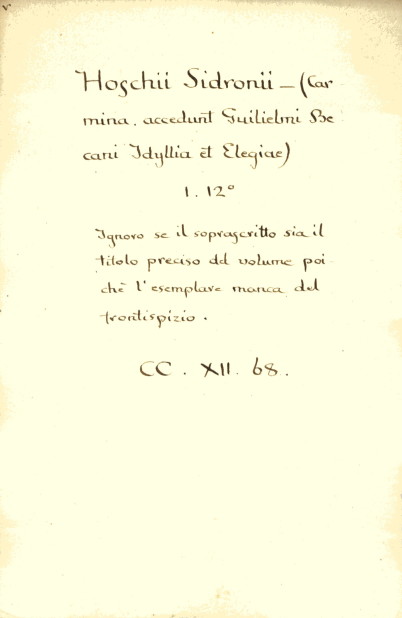 Hoschii Sidronii – (Car
mina. accedunt Guilielmi Be
cani Idyllia et Elegiae)
1. 12º
Ignoro se il soprascritto sia il
titolo preciso del volume poi
chè l'esemplare manca del
frontispizio.
CC. XII. 68.